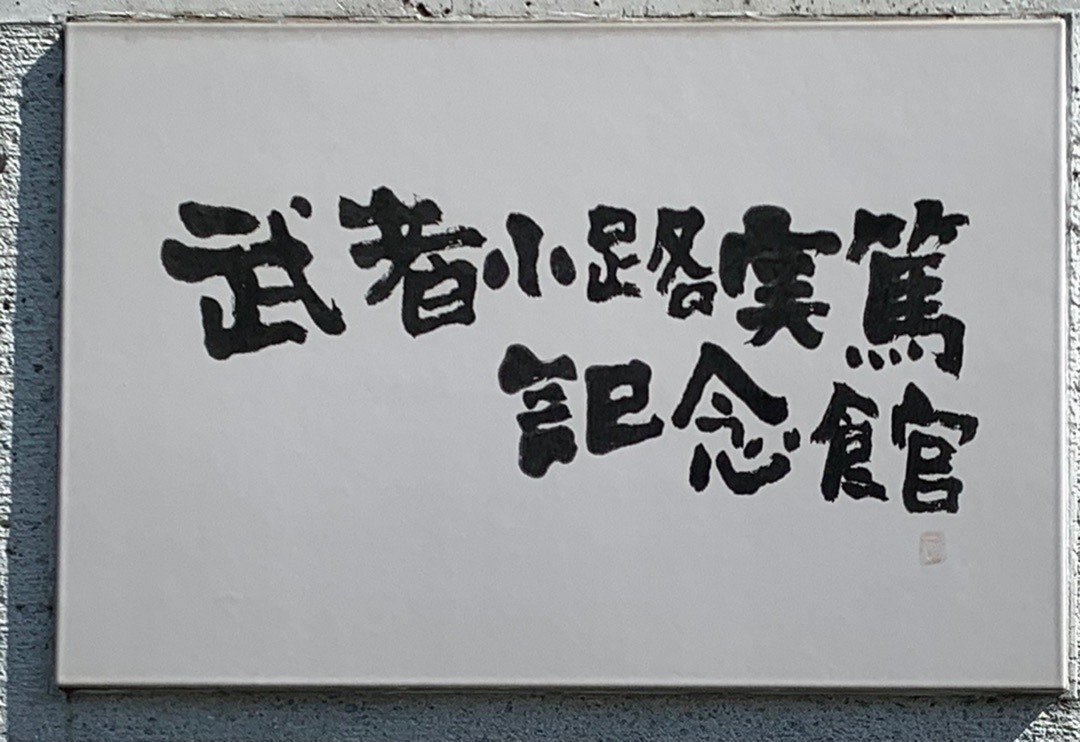 武者小路実篤
記念館